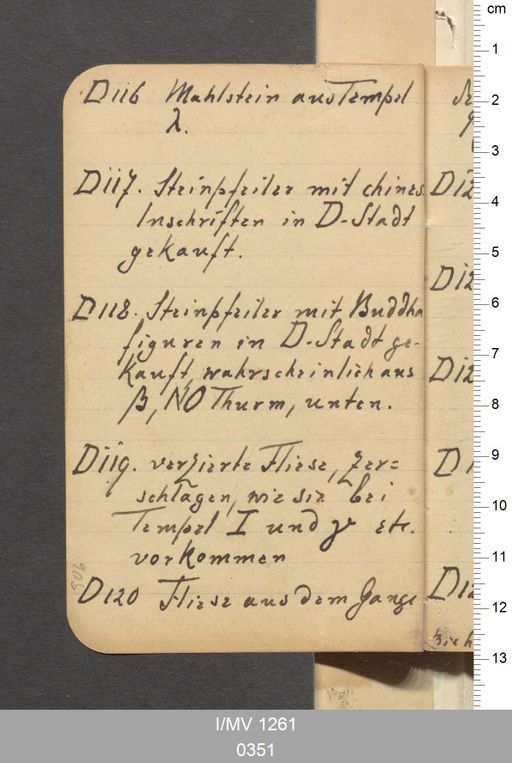 D116 Mahlstein aus Tempel
λ.
D117. Steinpfeiler mit chines.
Inschriften in D-Stadt
gekauft.
D118. Steinpfeiler mit Buddha
figuren in D-Stadt ge-
kauft, wahrscheinlich aus
β, NO Thurm, unten.
D119. verzierte Fliese, zer=
schlagen, wie sie bei
Tempel I und γ etc.
vorkommen
D120 Fliese aus dem Gange
906
D12
D12
D12
D1
D12
cm
1
2
3
4
5
6
7
8
9
10
11
12
13
I/MV 1261
0351